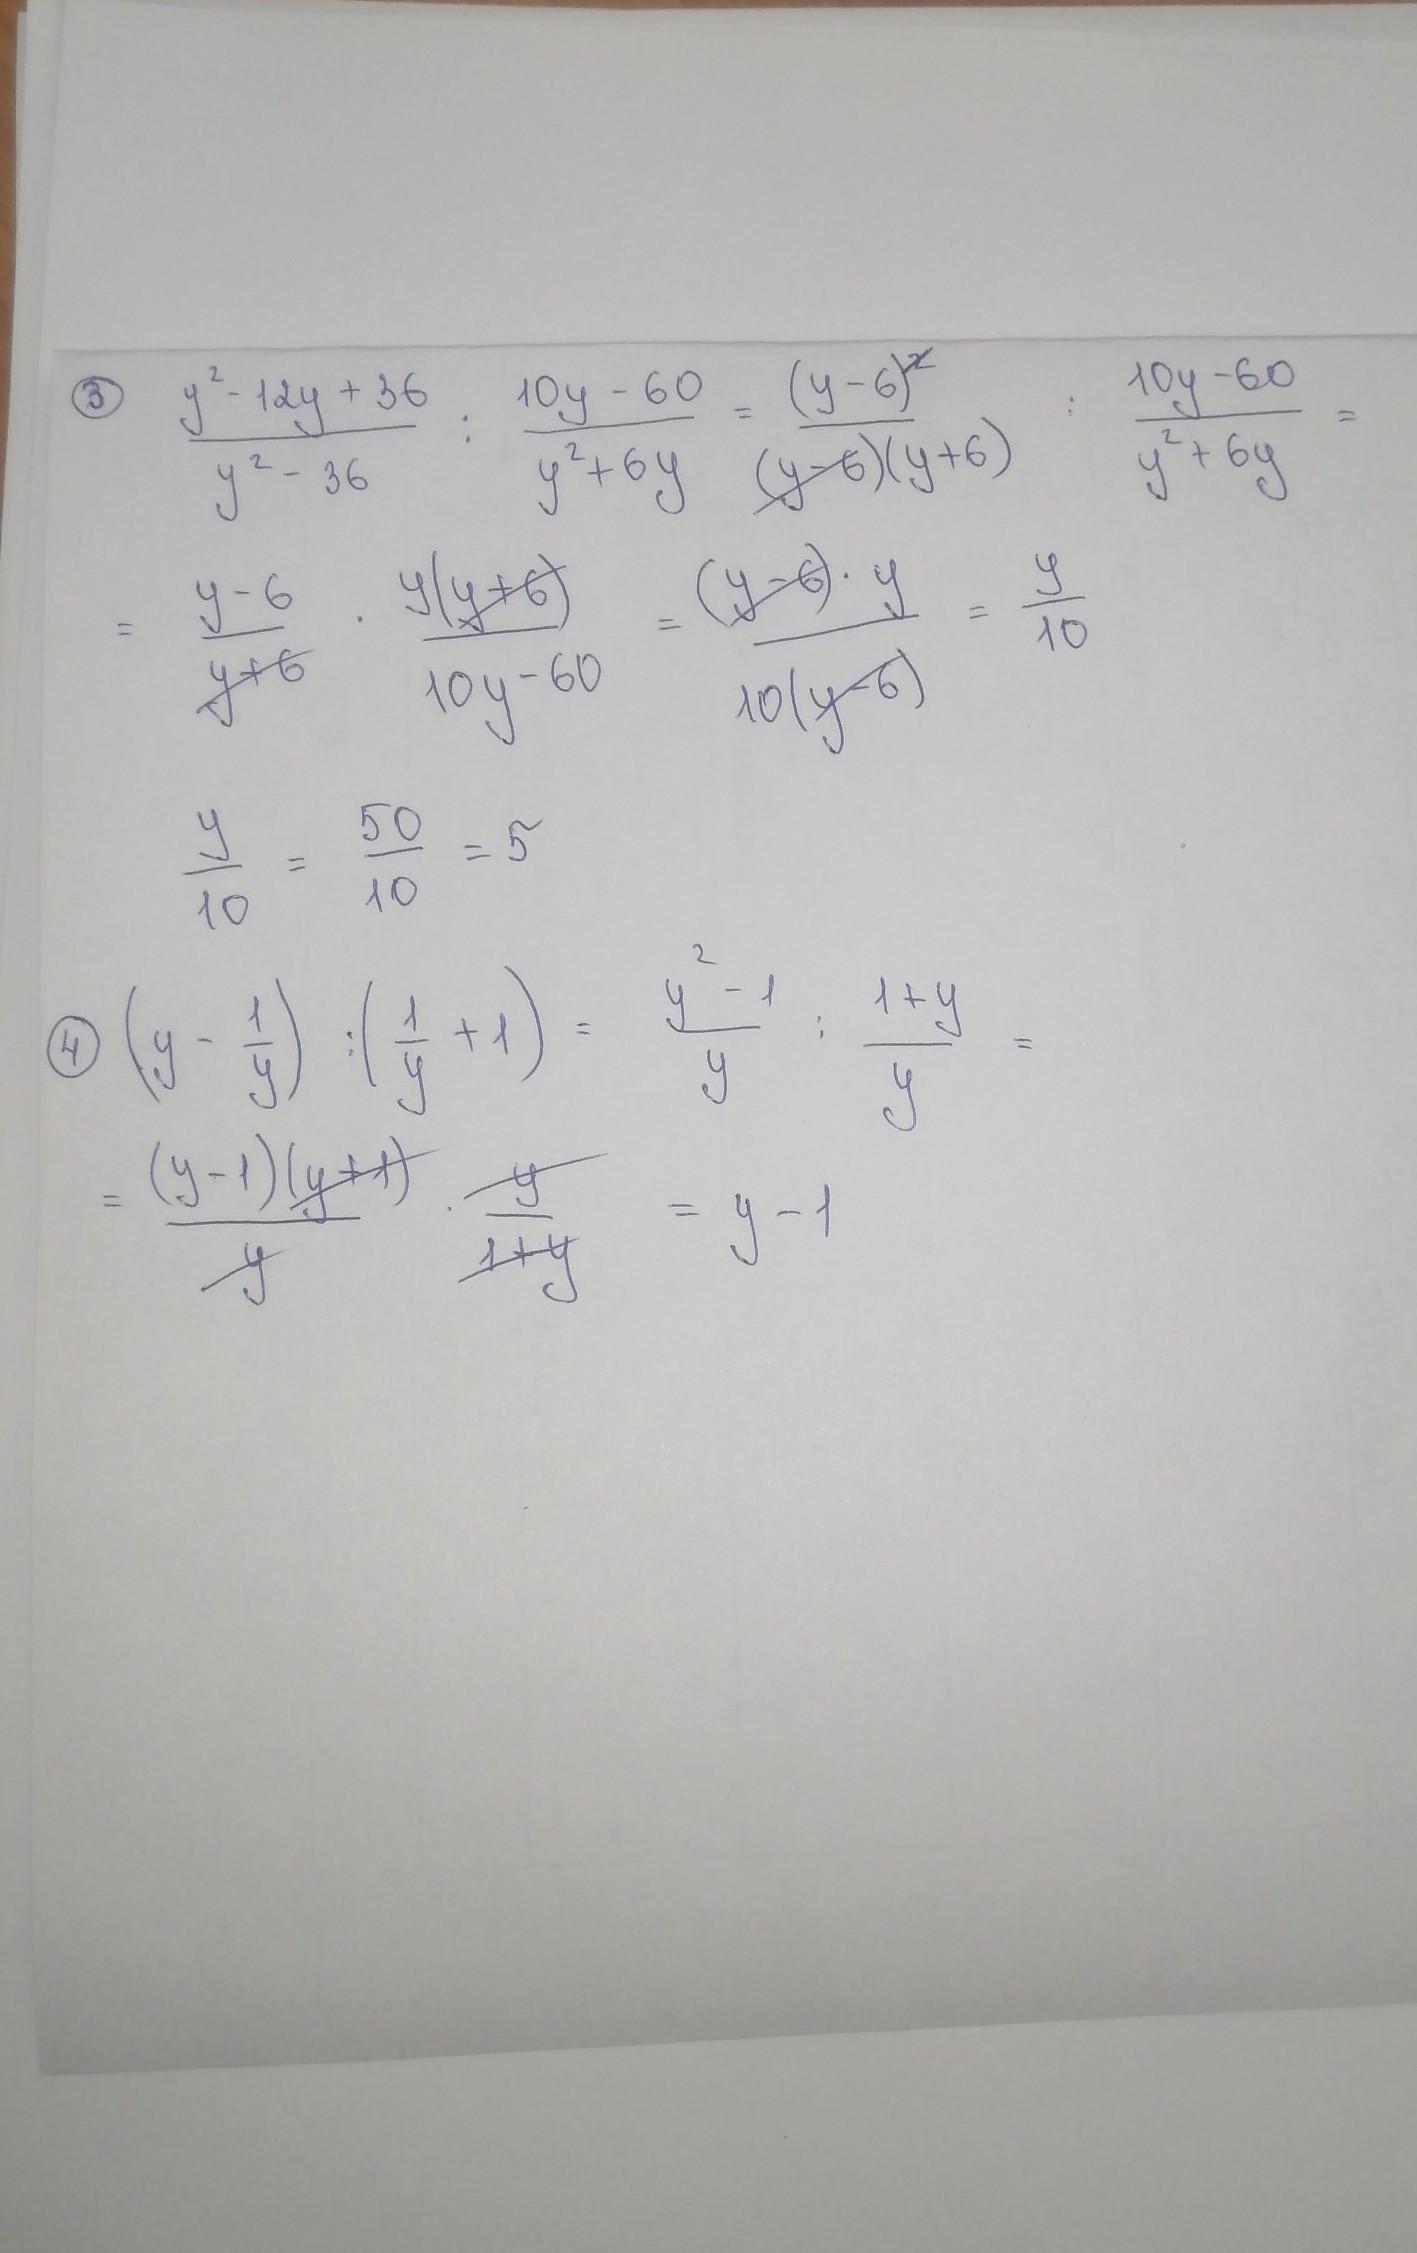 ③ (y² - 12y + 36)/(y² - 36) : (10y - 60)/(y² + 6y) = (y - 6)²/((y - 6)(y + 6)) : (10y - 60)/(y² + 6y) =
= (y - 6)/(y + 6) · y(y + 6)/(10y - 60) = ((y - 6) · y)/(10(y - 6)) = y/10
y/10 = 50/10 = 5
④ (y - 1/y) : (1/y + 1) = (y² - 1)/y : (1 + y)/y =
= ((y - 1)(y + 1))/y · y/(1 + y) = y - 1